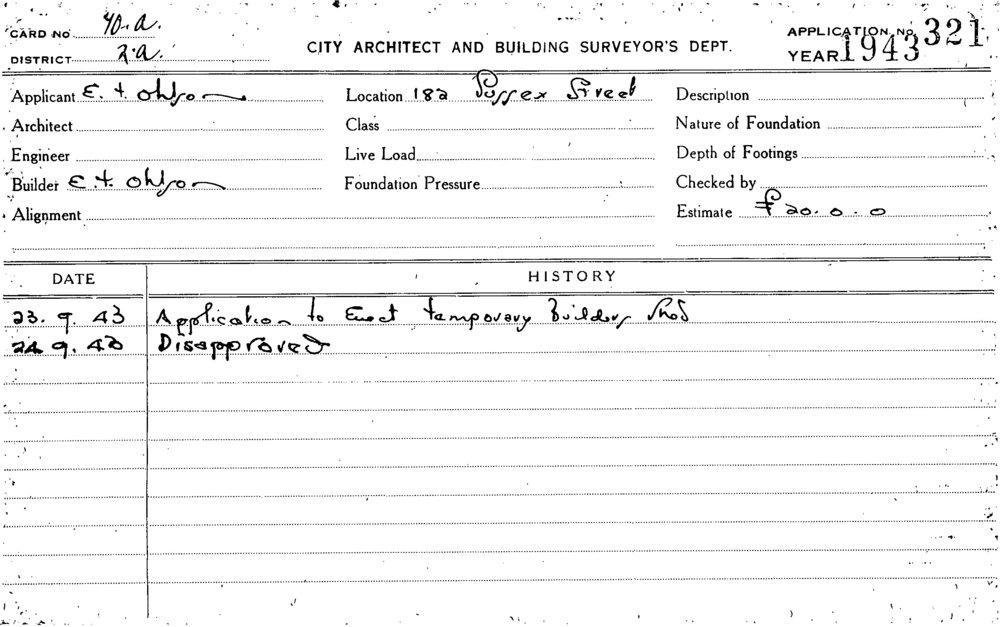 CARD NO 40.a.
DISTRICT 2.a.
CITY ARCHITECT AND BUILDING SURVEYOR'S DEPT.
APPLICATION No. 321
YEAR 1943
Applicant E. t. Ohlson Location 182 Sussex Street Description
Architect Class Nature of Foundation
Engineer Live Load Depth of Footings
Builder E. t. Ohlson Foundation Pressure Checked by
Alignment Estimate £ 20. 0. 0
DATE HISTORY
23. 9. 43 Application to Erect temporary Builders Shed
24. 9. 43 Disapproved